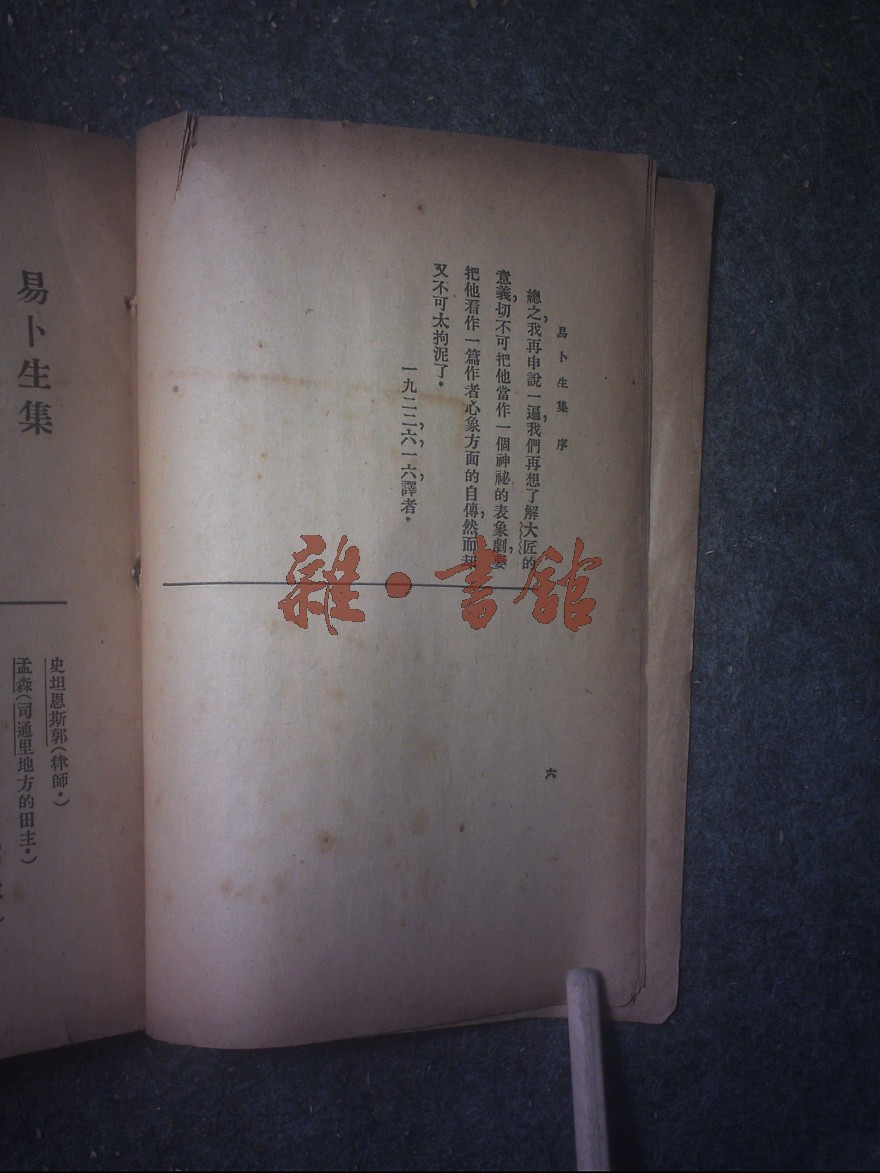 易卜生集 序
總之，我再申說一遍，我們再想了解大匠的
意義，切不可把他當作一個神祕的表象劇，要
把他看作一篇作者心象方面的自傳，然而却
又不可太拘泥了。
一九二二，六，一六，譯者。
六
雜·書館
易卜生集
史坦恩斯郭（律師。）
孟森（司通里地方的田主。）